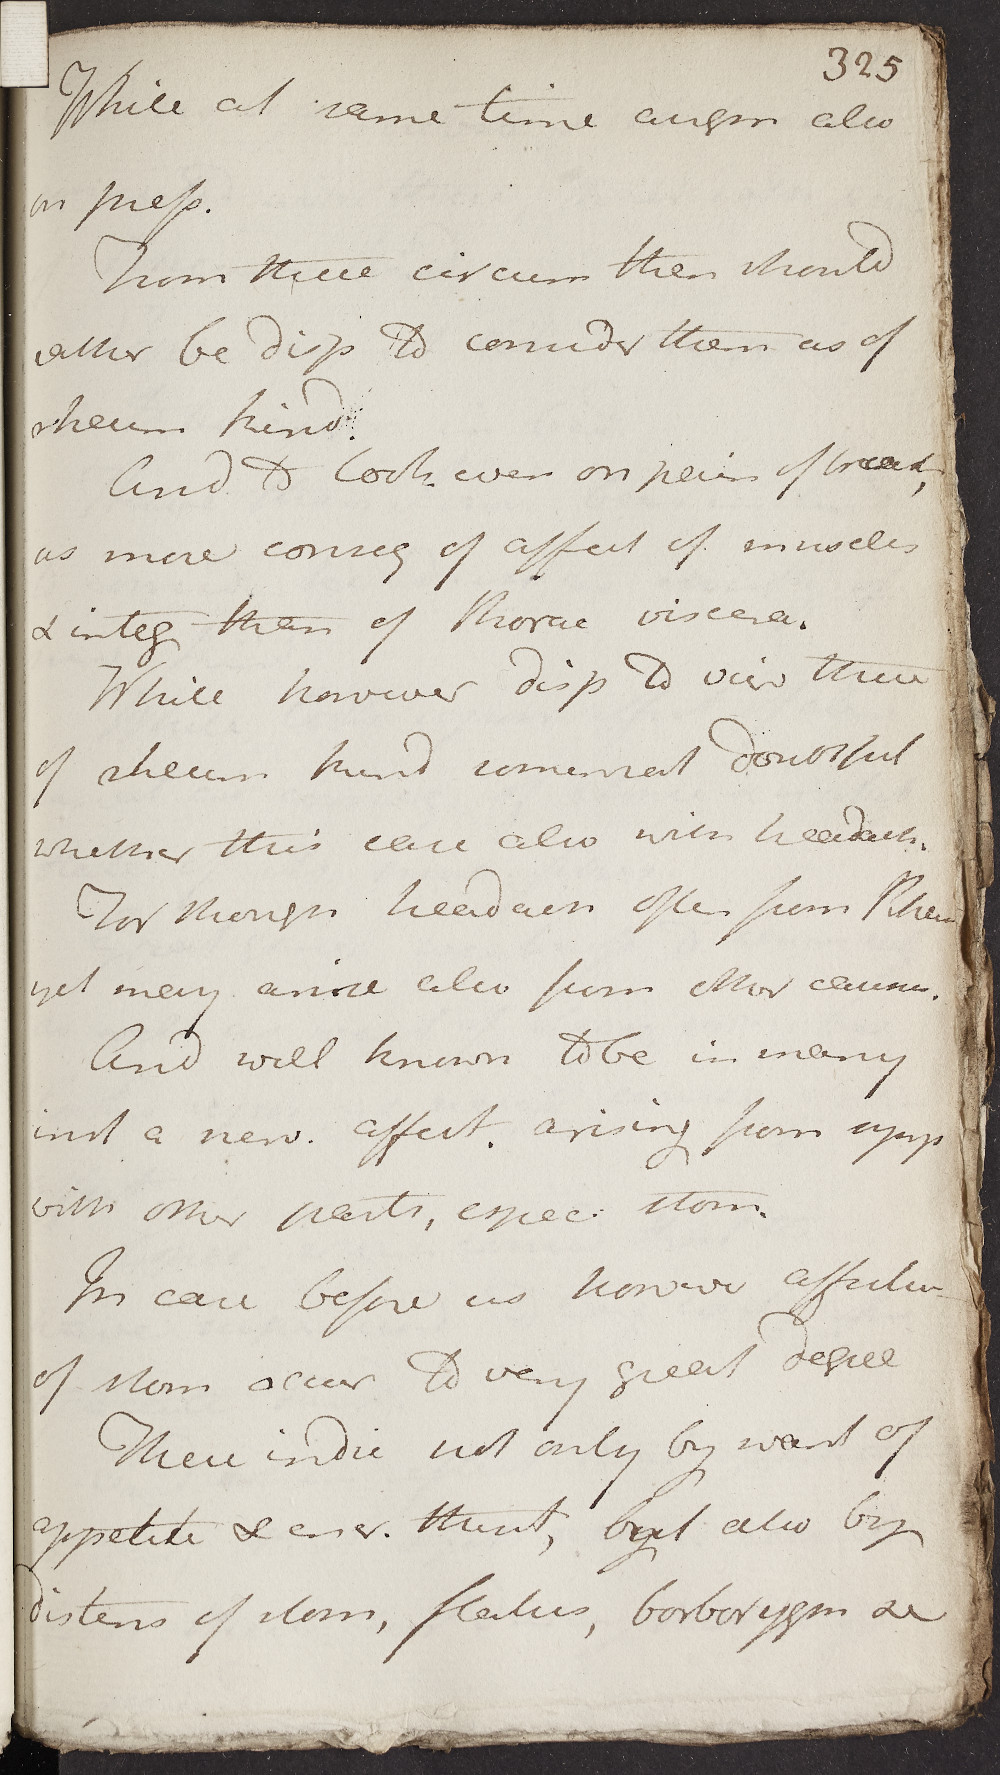 325
While at same time augm also
on press.
From these circum then should
rather be disp to consider them as of
rheum kind.
And to look even on pain of breast,
as more conseq of affect of muscles
& integ than of thorac viscera.
While however disp to view these
of rheum kind somewhat doubtful
whether this case also with headach.
For though headach often from Rheum
yet may arise also from other causes.
And well known to be in many
inst a nerv. affect. arising from symp
with other parts, espec. stom.
In case before us however affection
of stom occur to very great degree
These indic not only by want of
appetite & thirst, but also by
distens of stom, flatus, borborygm &c